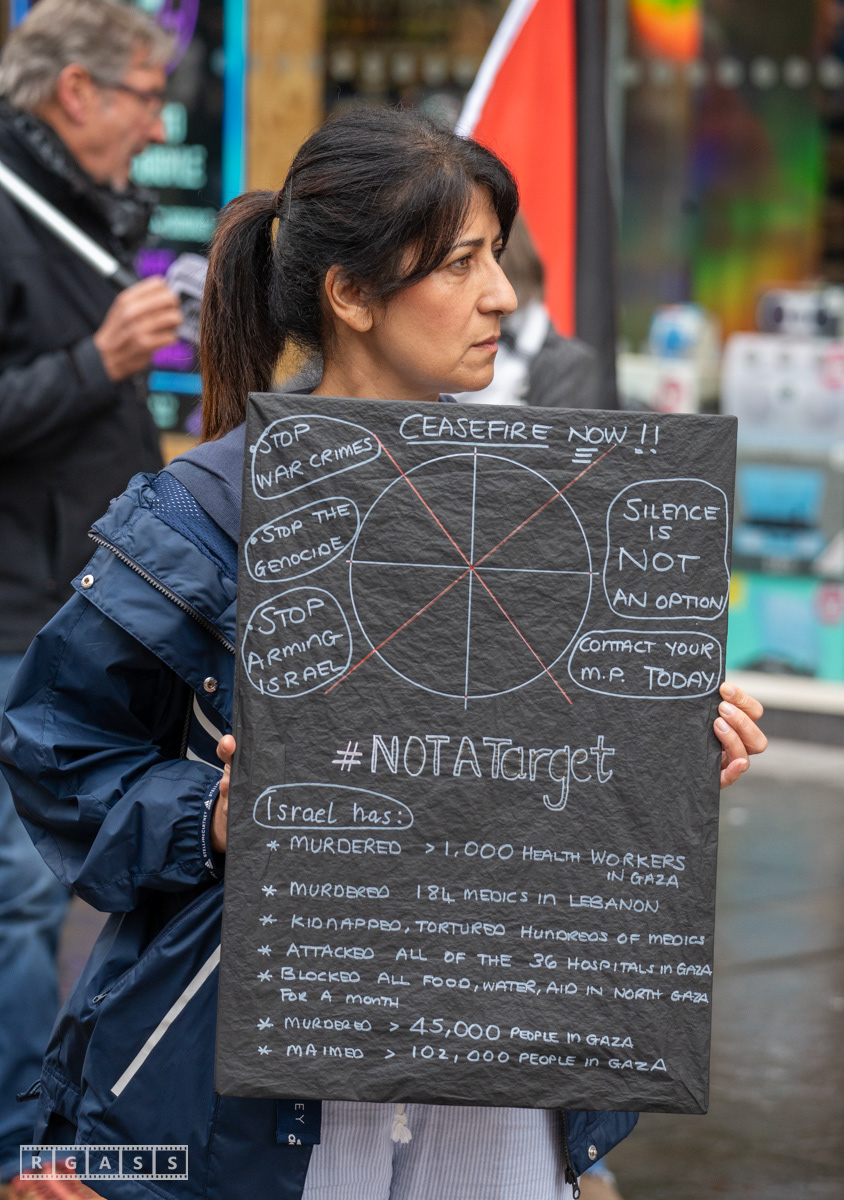 CEASEFIRE NOW !!
• STOP
WAR CRIMES
• STOP THE
GENOCIDE
• STOP
ARMING
ISRAEL
SILENCE
IS
NOT
AN OPTION
CONTACT YOUR
M.P. TODAY
#NOTATarget
Israel has:
* MURDERED >1,000 HEALTH WORKERS
IN GAZA
* MURDERED 184 MEDICS IN LEBANON
* KIDNAPPED, TORTURED HUNDREDS OF MEDICS
* ATTACKED ALL OF THE 36 HOSPITALS IN GAZA
* BLOCKED ALL FOOD, WATER, AID IN NORTH GAZA
FOR A MONTH
* MURDERED > 45,000 PEOPLE IN GAZA
* MAIMED > 102,000 PEOPLE IN GAZA
RGASS